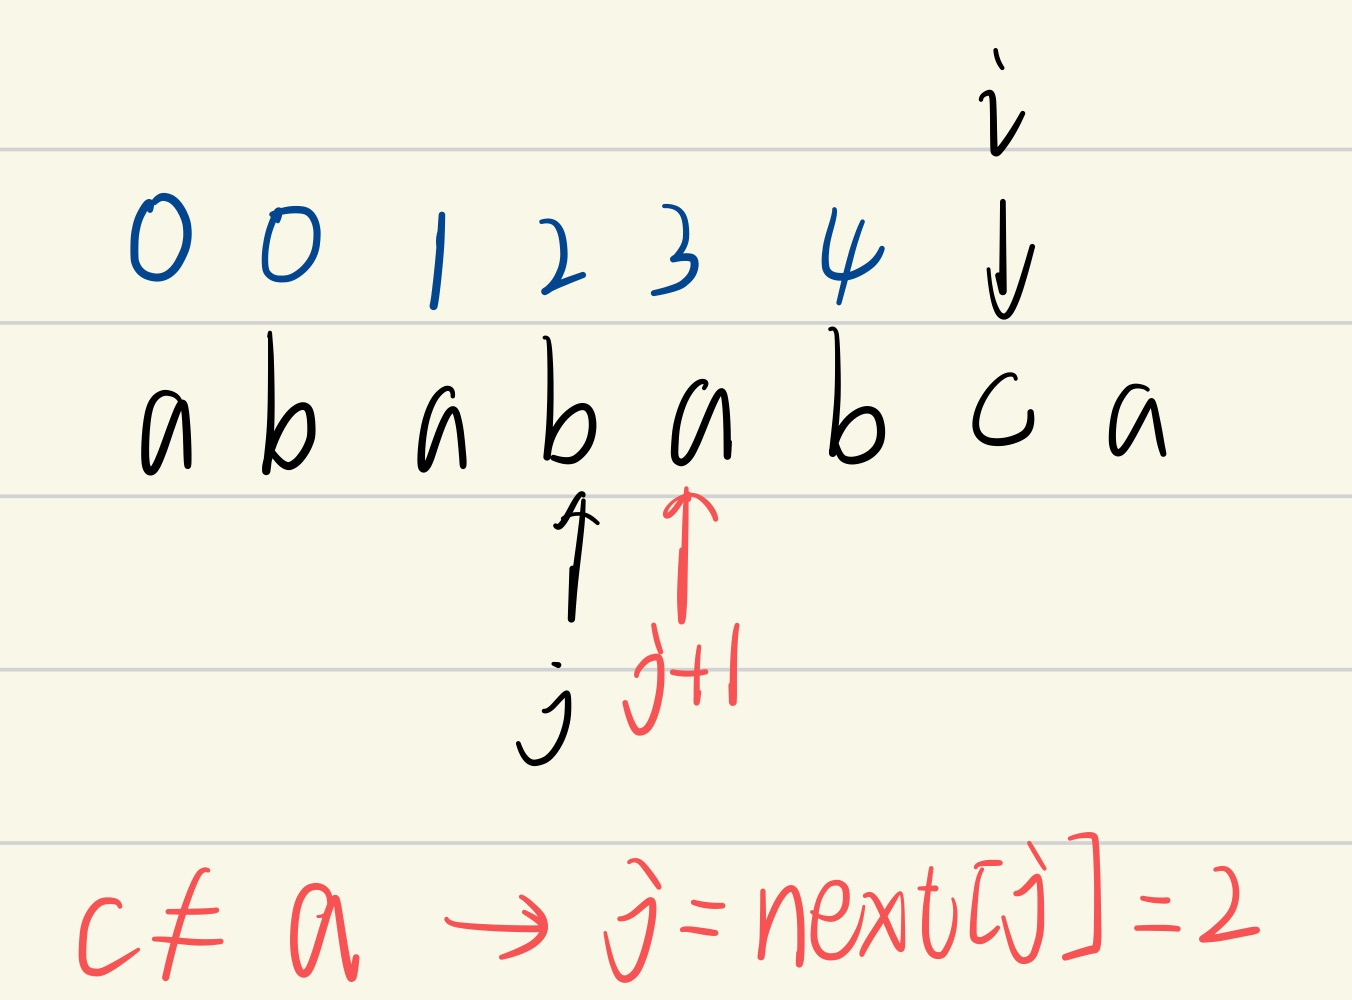 i
0 0 1 2 3 4
a b a b a b c a
j j+1
c ≠ a → j = next[j] = 2